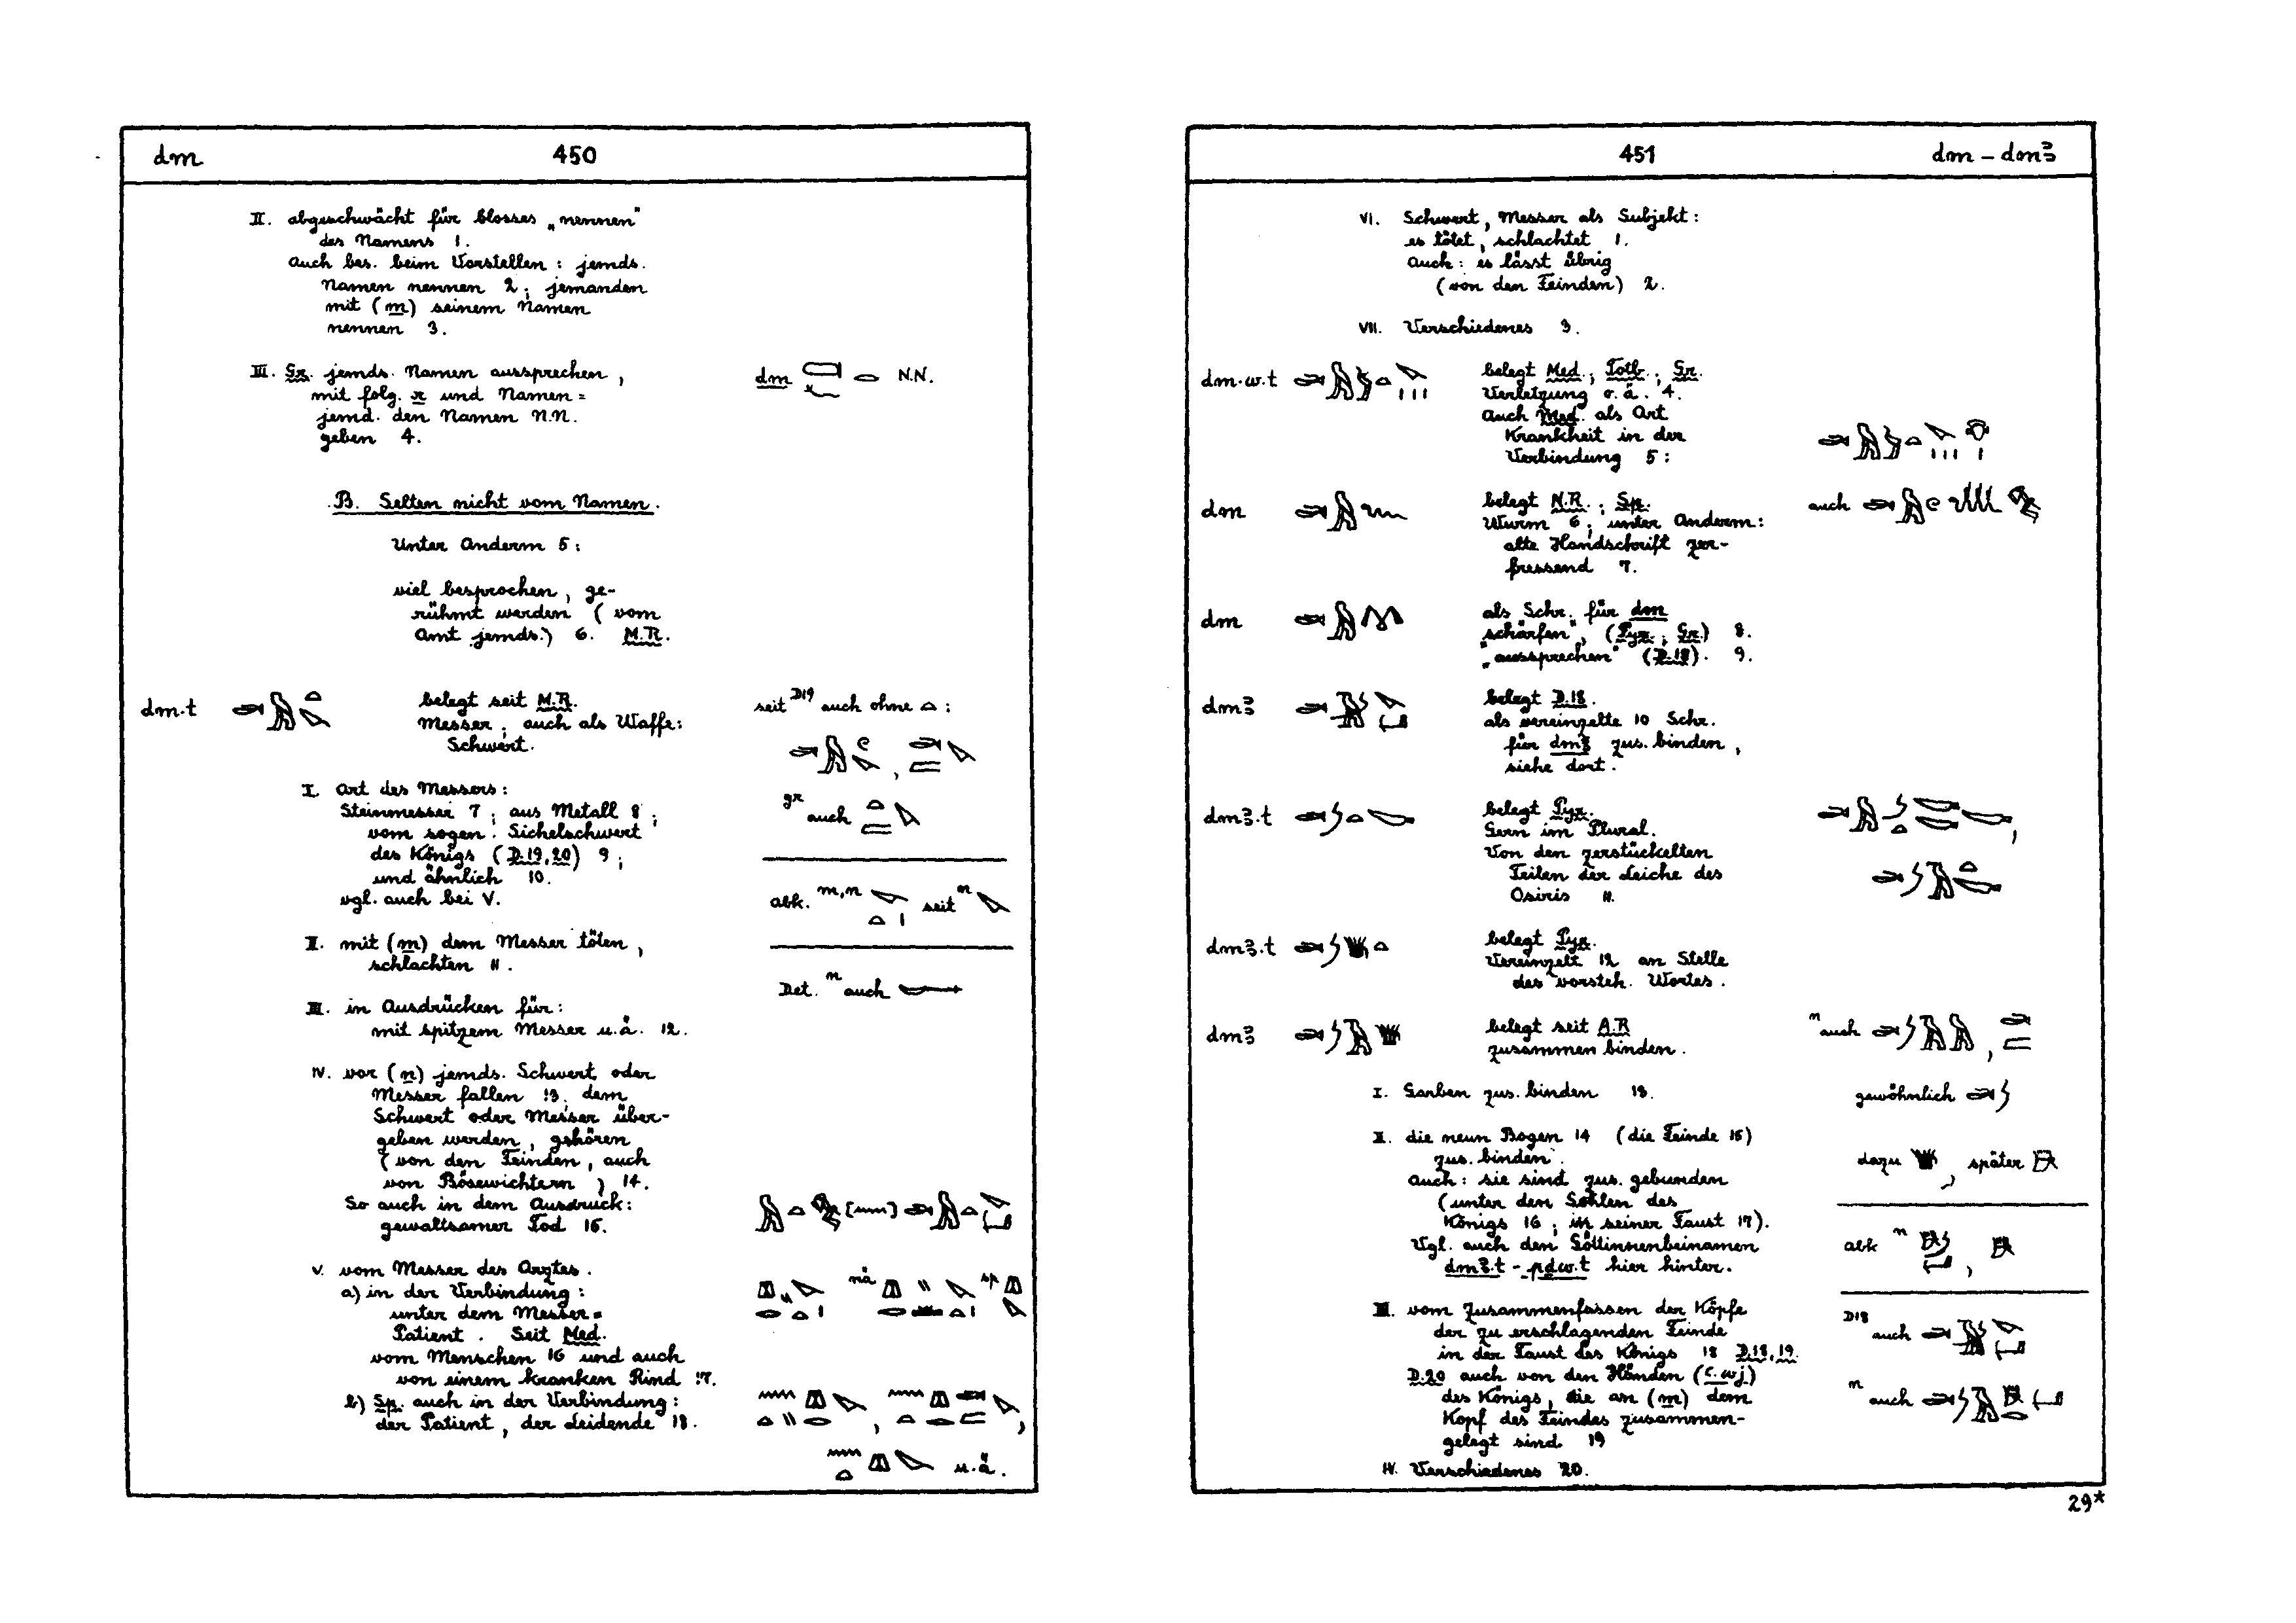 dm 450
II. abgeschwächt für blosses „nennen"
des Namens 1.
Auch bes. beim Vorstellen : jemds.
Namen nennen 2 ; jemanden
mit (m) seinem Namen
nennen 3.
III. Gr. jemds. Namen aussprechen,
mit folg. r und Namen =
jemd. den Namen N.N.
geben 4.
dm N.N.
B. Selten nicht vom Namen.
Unter Anderm 5 :
viel besprochen, ge-
rühmt werden (vom
Amt jemds.) 6. M.R.
dm.t
belegt seit M.R.
Messer ; auch als Waffe :
Schwert.
seit D19 auch ohne :
gr auch
I. Art des Messers :
Steinmesser 7 ; aus Metall 8 ;
vom sogen. Sichelschwert
des Königs (D.19,20) 9 ;
und ähnlich 10.
vgl. auch bei V.
abk. m,n seit n
II. mit (m) dem Messer töten,
schlachten 11.
Det. n auch
III. in Ausdrücken für :
mit spitzem Messer u.ä. 12.
IV. vor (n) jemds. Schwert oder
Messer fallen 13, dem
Schwert oder Messer über-
geben werden, gehören
(von den Feinden, auch
von Bösewichtern) 14.
So auch in dem Ausdruck :
gewaltsamer Tod 15.
V. vom Messer des Arztes.
a) in der Verbindung :
unter dem Messer =
Patient. Seit Med.
vom Menschen 16 und auch
von einem kranken Rind 17.
nä sp
b) Sp. auch in der Verbindung :
der Patient, der Leidende 18.
u.ä.
451 dm – dmꜣ
VI. Schwert, Messer als Subjekt :
es tötet, schlachtet 1.
Auch : es lässt übrig
(von den Feinden) 2.
VII. Verschiedenes 3.
dm.w.t
belegt Med. ; Totb. ; Gr.
Verletzung o.ä. 4.
Auch Med. als Art
Krankheit in der
Verbindung 5 :
dm
belegt N.R. ; Sp.
Wurm 6 ; unter Anderm :
alte Handschrift zer-
fressend 7.
auch
dm
als Schr. für dm
„schärfen", (Pyr. ; Gr.) 8.
„aussprechen" (D.18). 9.
dmꜣ
belegt D.18.
als vereinzelte 10 Schr.
für dmꜣ zus. binden,
siehe dort.
dmꜣ.t
belegt Pyr.
Gern im Plural.
Von den zerstückelten
Teilen der Leiche des
Osiris 11.
dmꜣ.t
belegt Pyr.
Vereinzelt 12 an Stelle
des vorsteh. Wortes.
dmꜣ
belegt seit A.R.
zusammen binden.
n auch
I. Garben zus. binden 13.
gewöhnlich
II. die neun Bogen 14 (die Feinde 15)
zus. binden.
Auch : sie sind zus. gebunden
(unter den Sohlen des
Königs 16 ; in seiner Faust 17).
Vgl. auch den Göttinnenbeinamen
dmꜣ.t - pḏw.t hier hinter.
dazu , später
abk n
III. vom Zusammenfassen der Köpfe
der zu erschlagenden Feinde
in der Faust des Königs 18 D.18,19.
D.20 auch von den Händen (c.wj)
des Königs, die an (m) dem
Kopf des Feindes zusammen-
gelegt sind. 19
D18 auch
n auch
IV. Verschiedenes 20.
29*